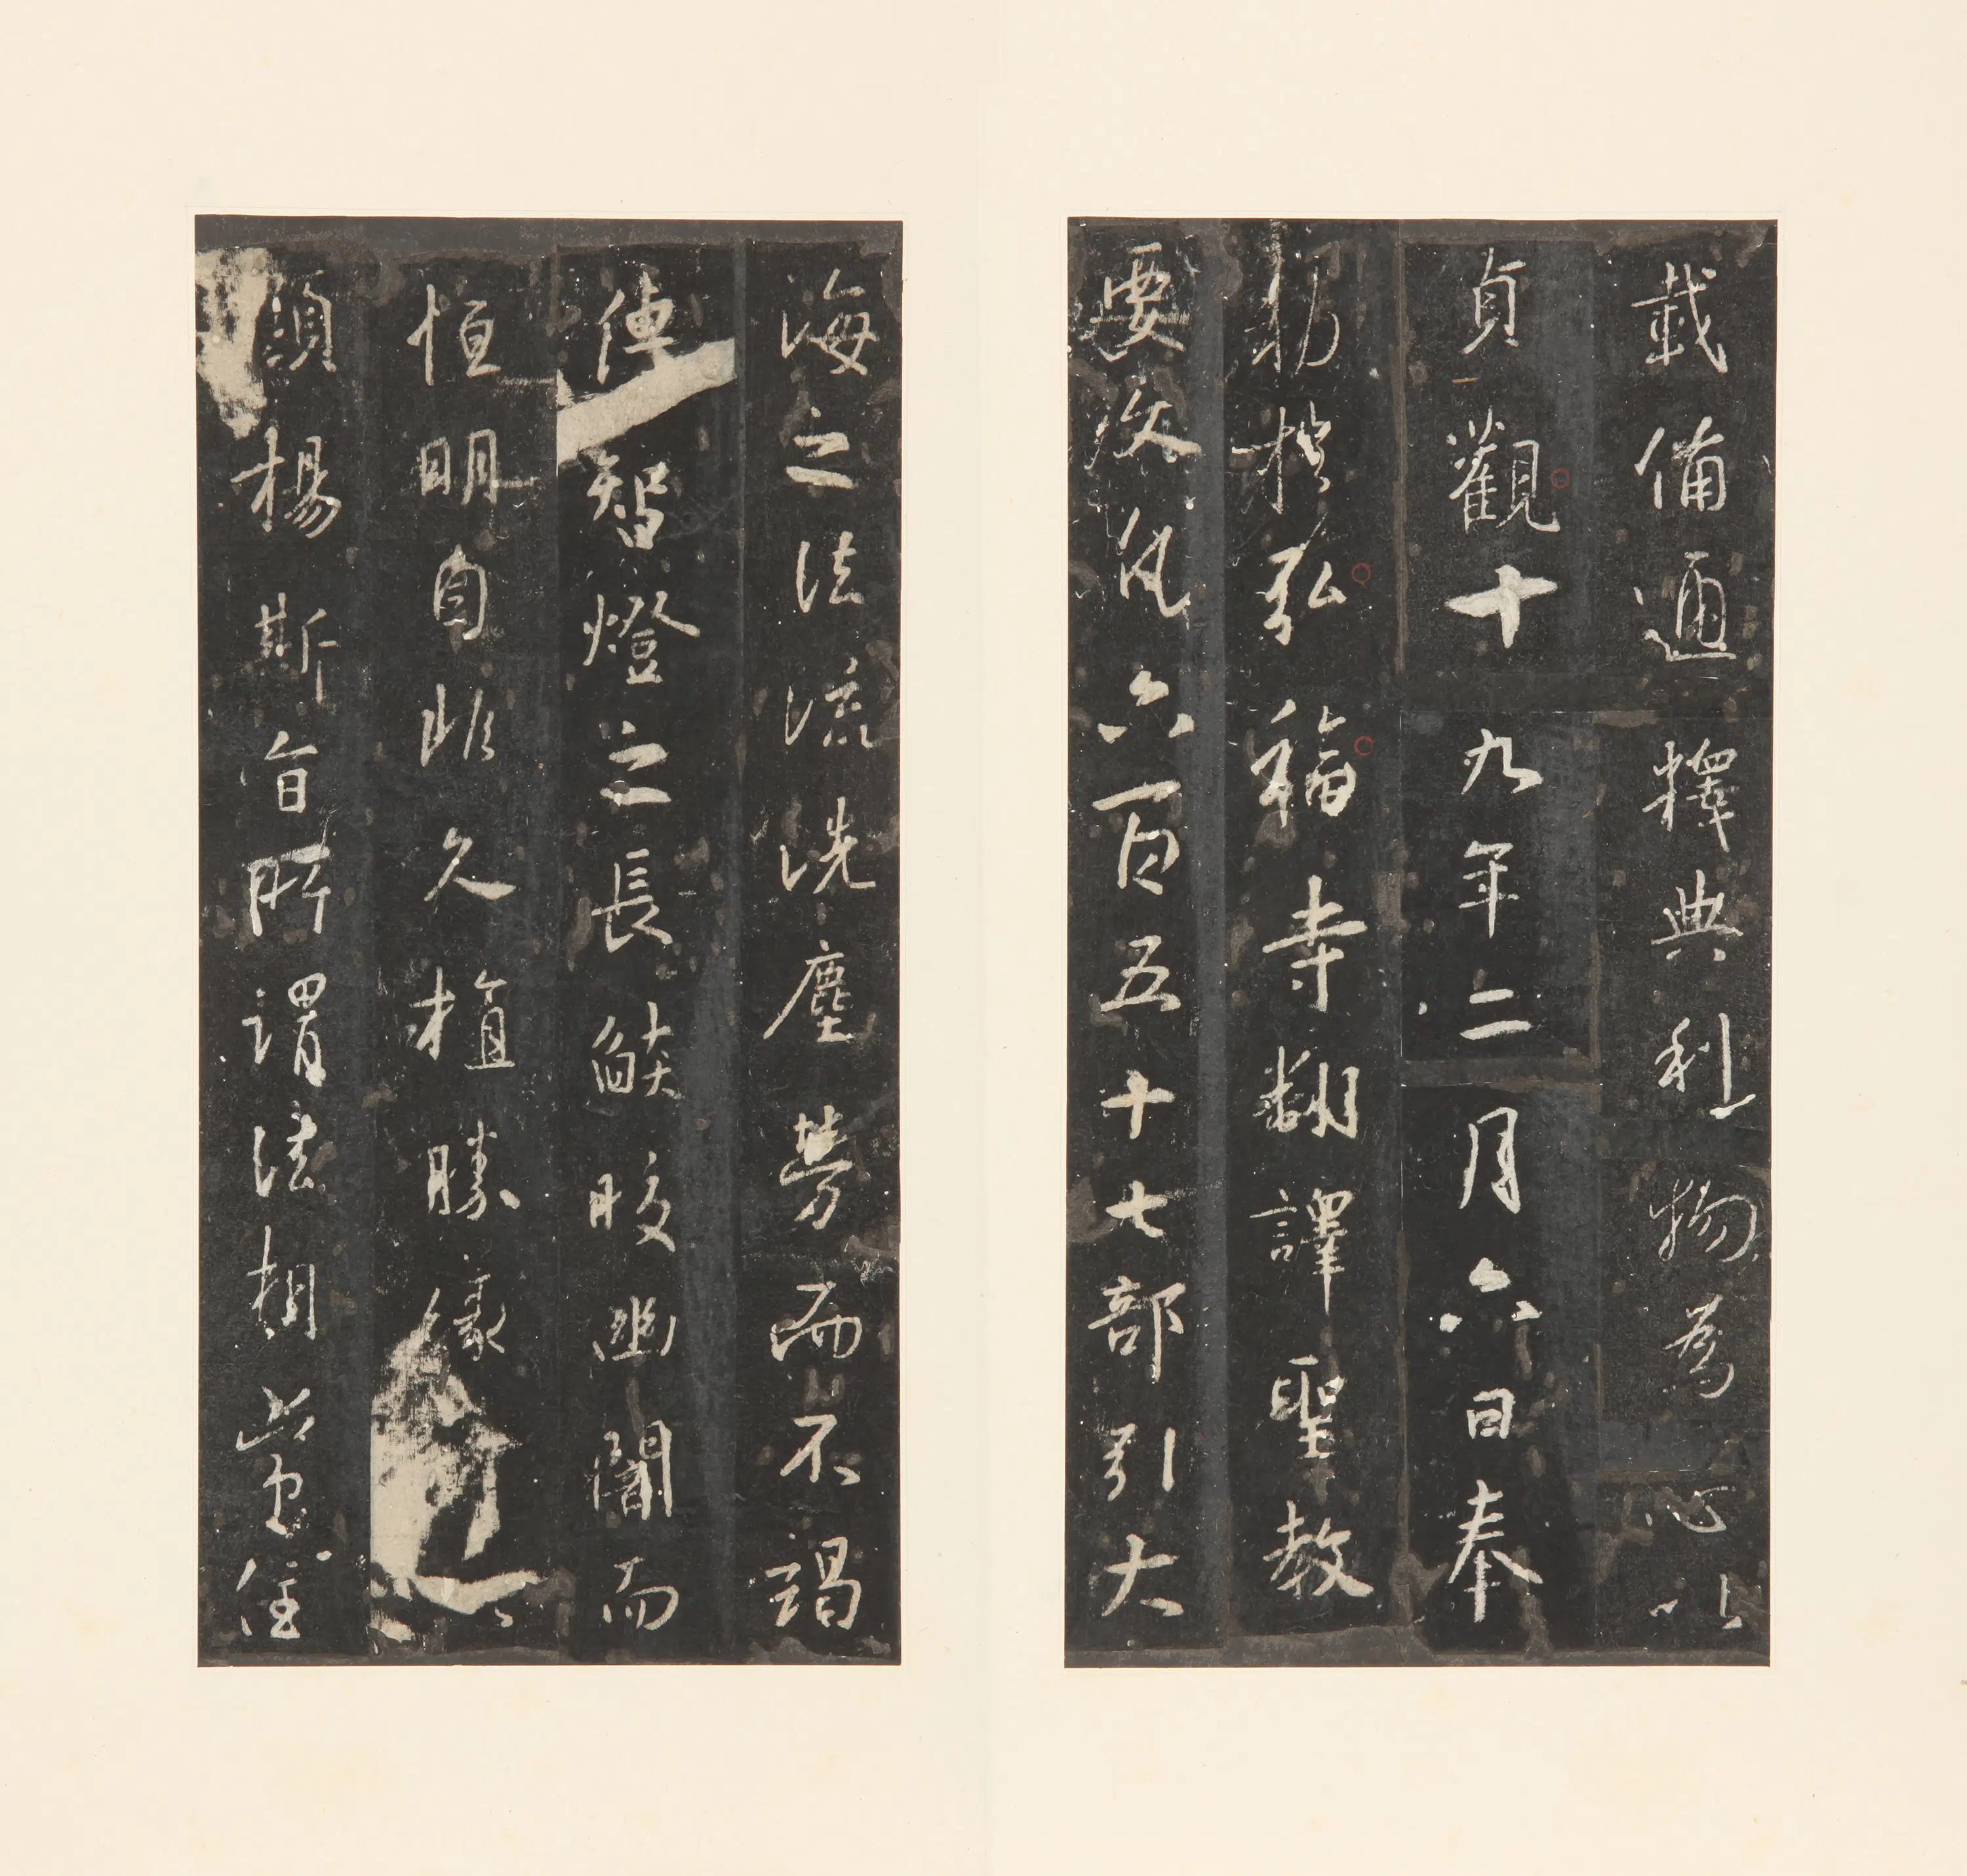 載備通釋典利物為心以
貞觀十九年二月六日奉
勑於弘福寺翻譯聖教
要文凡六百五十七部引大
海之法流洗塵勞而不竭
傳智燈之長焰皎幽闇而
恒明自非久植勝緣
顯揚斯旨所謂法相常住